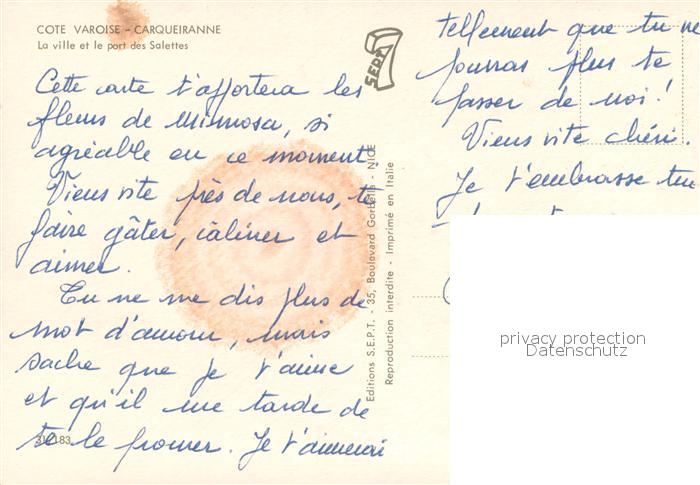 COTE VAROISE - CARQUEIRANNE
La ville et le port des Salettes
Cette carte t'apportera les
fleurs de Mimosa, si
agréable en ce moment.
Viens vite près de nous, te
faire gâter, câliner et
aimer.
Tu ne me dis plus de
mot d'amour, mais
sache que je t'aime
et qu'il me tarde de
te le prouver. Je t'aimerai
SEPT
Editions S.E.P.T. - 35, Boulevard Gorbella - NICE
Reproduction interdite - Imprimé en Italie
tellement que tu ne
pourras plus te
passer de moi!
Viens vite chéri.
Je t'embrasse
privacy protection
Datenschutz